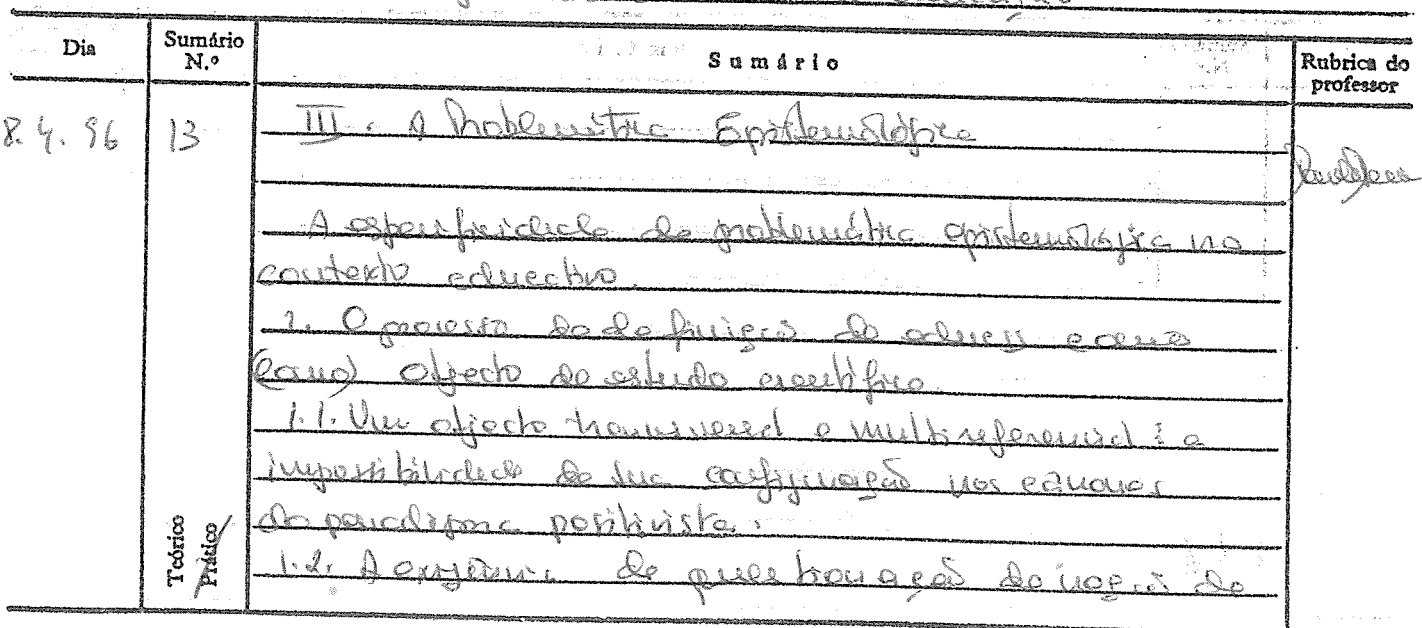 Dia
Sumário N.º
Sumário
Rubrica do professor
8.4.96
13
III. A Problemática Epistemológica
A especificidade da problemática epistemológica no
contexto educativo.
1. O processo de definição da educação como
(como) objecto de estudo científico.
1.1. Um objecto transversal e multireferencial: a
impossibilidade da sua configuração nos cânones
do paradigma positivista.
1.2. A exigência de questionação da noção de
Teórico
Prático